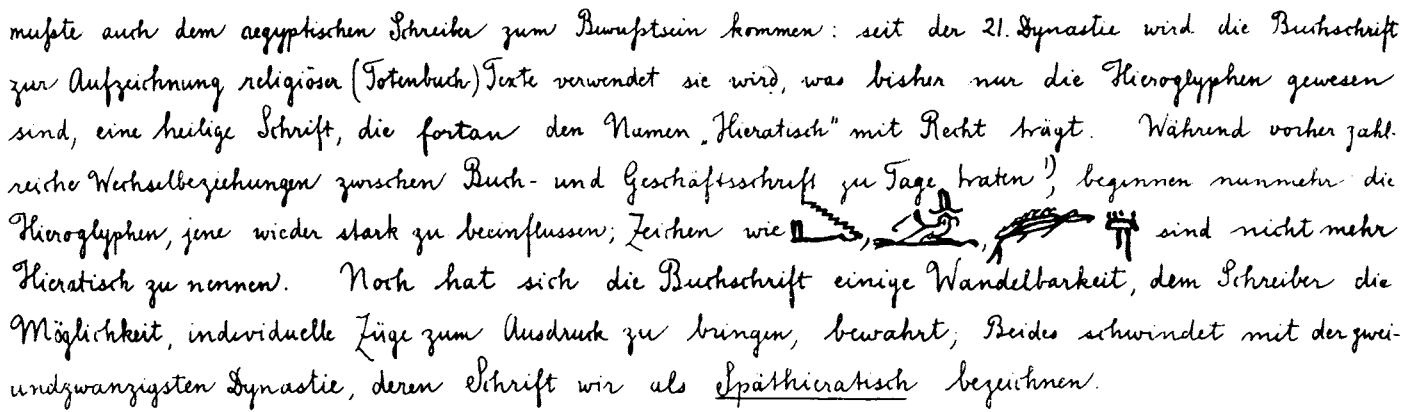 mußte auch dem aegyptischen Schreiber zum Bewußtsein kommen: seit der 21. Dynastie wird die Buchschrift
zur Aufzeichnung religiöser (Totenbuch) Texte verwendet sie wird, was bisher nur die Hieroglyphen gewesen
sind, eine heilige Schrift, die fortan den Namen „Hieratisch“ mit Recht trägt. Während vorher zahl-
reiche Wechselbeziehungen zwischen Buch- und Geschäftsschrift zu Tage traten¹), beginnen nunmehr die
Hieroglyphen, jene wieder stark zu beeinflussen; Zeichen wie , , sind nicht mehr
Hieratisch zu nennen. Noch hat sich die Buchschrift einige Wandelbarkeit, dem Schreiber die
Möglichkeit, individuelle Züge zum Ausdruck zu bringen, bewahrt; Beides schwindet mit der zwei-
undzwanzigsten Dynastie, deren Schrift wir als Späthieratisch bezeichnen.